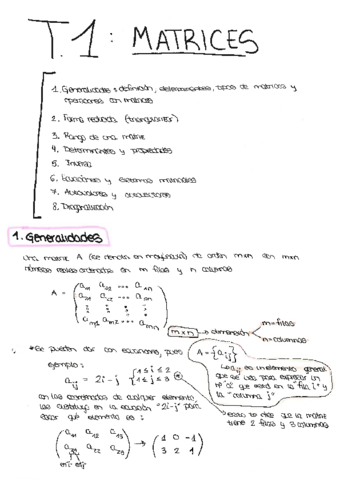 T.1: MATRICES
1. Generalidades: definición, determinantes, tipos de matrices y
operaciones con matrices
2. Forma reducida (triangulación)
3. Rango de una matriz
4. Determinantes y propiedades
5. Inversa
6. Ecuaciones y sistemas matriciales
7. Autovalores y autovectores
8. Diagonalización
1. Generalidades
Una matriz A (se denota en mayúscula) de orden mxn con mxn
números reales ordenados en m filas y n columnas
A = ( a11 a12 ... a1n
a21 a22 ... a2n
am1 am2 ... amn )
mxn → dimensión
m = filas
n = columnas
* Se pueden dar con ecuaciones, pues
A = {aij}
ejemplo:
aij = 2i - j { 1 ≤ i ≤ 2
1 ≤ j ≤ 3
aij es un elemento general
que se usa para expresar un
nº a que está en la "fila i" y
la "columna j"
con las coordenadas de cualquier elemento,
las sustituyo en la ecuación "2i-j" para
sacar qué elemento es:
esto te dice que la matriz
tiene 2 filas y 3 columnas
( a11 a12 a13
a21 a22 a23 ) → ( 1 0 -1
3 2 1 )